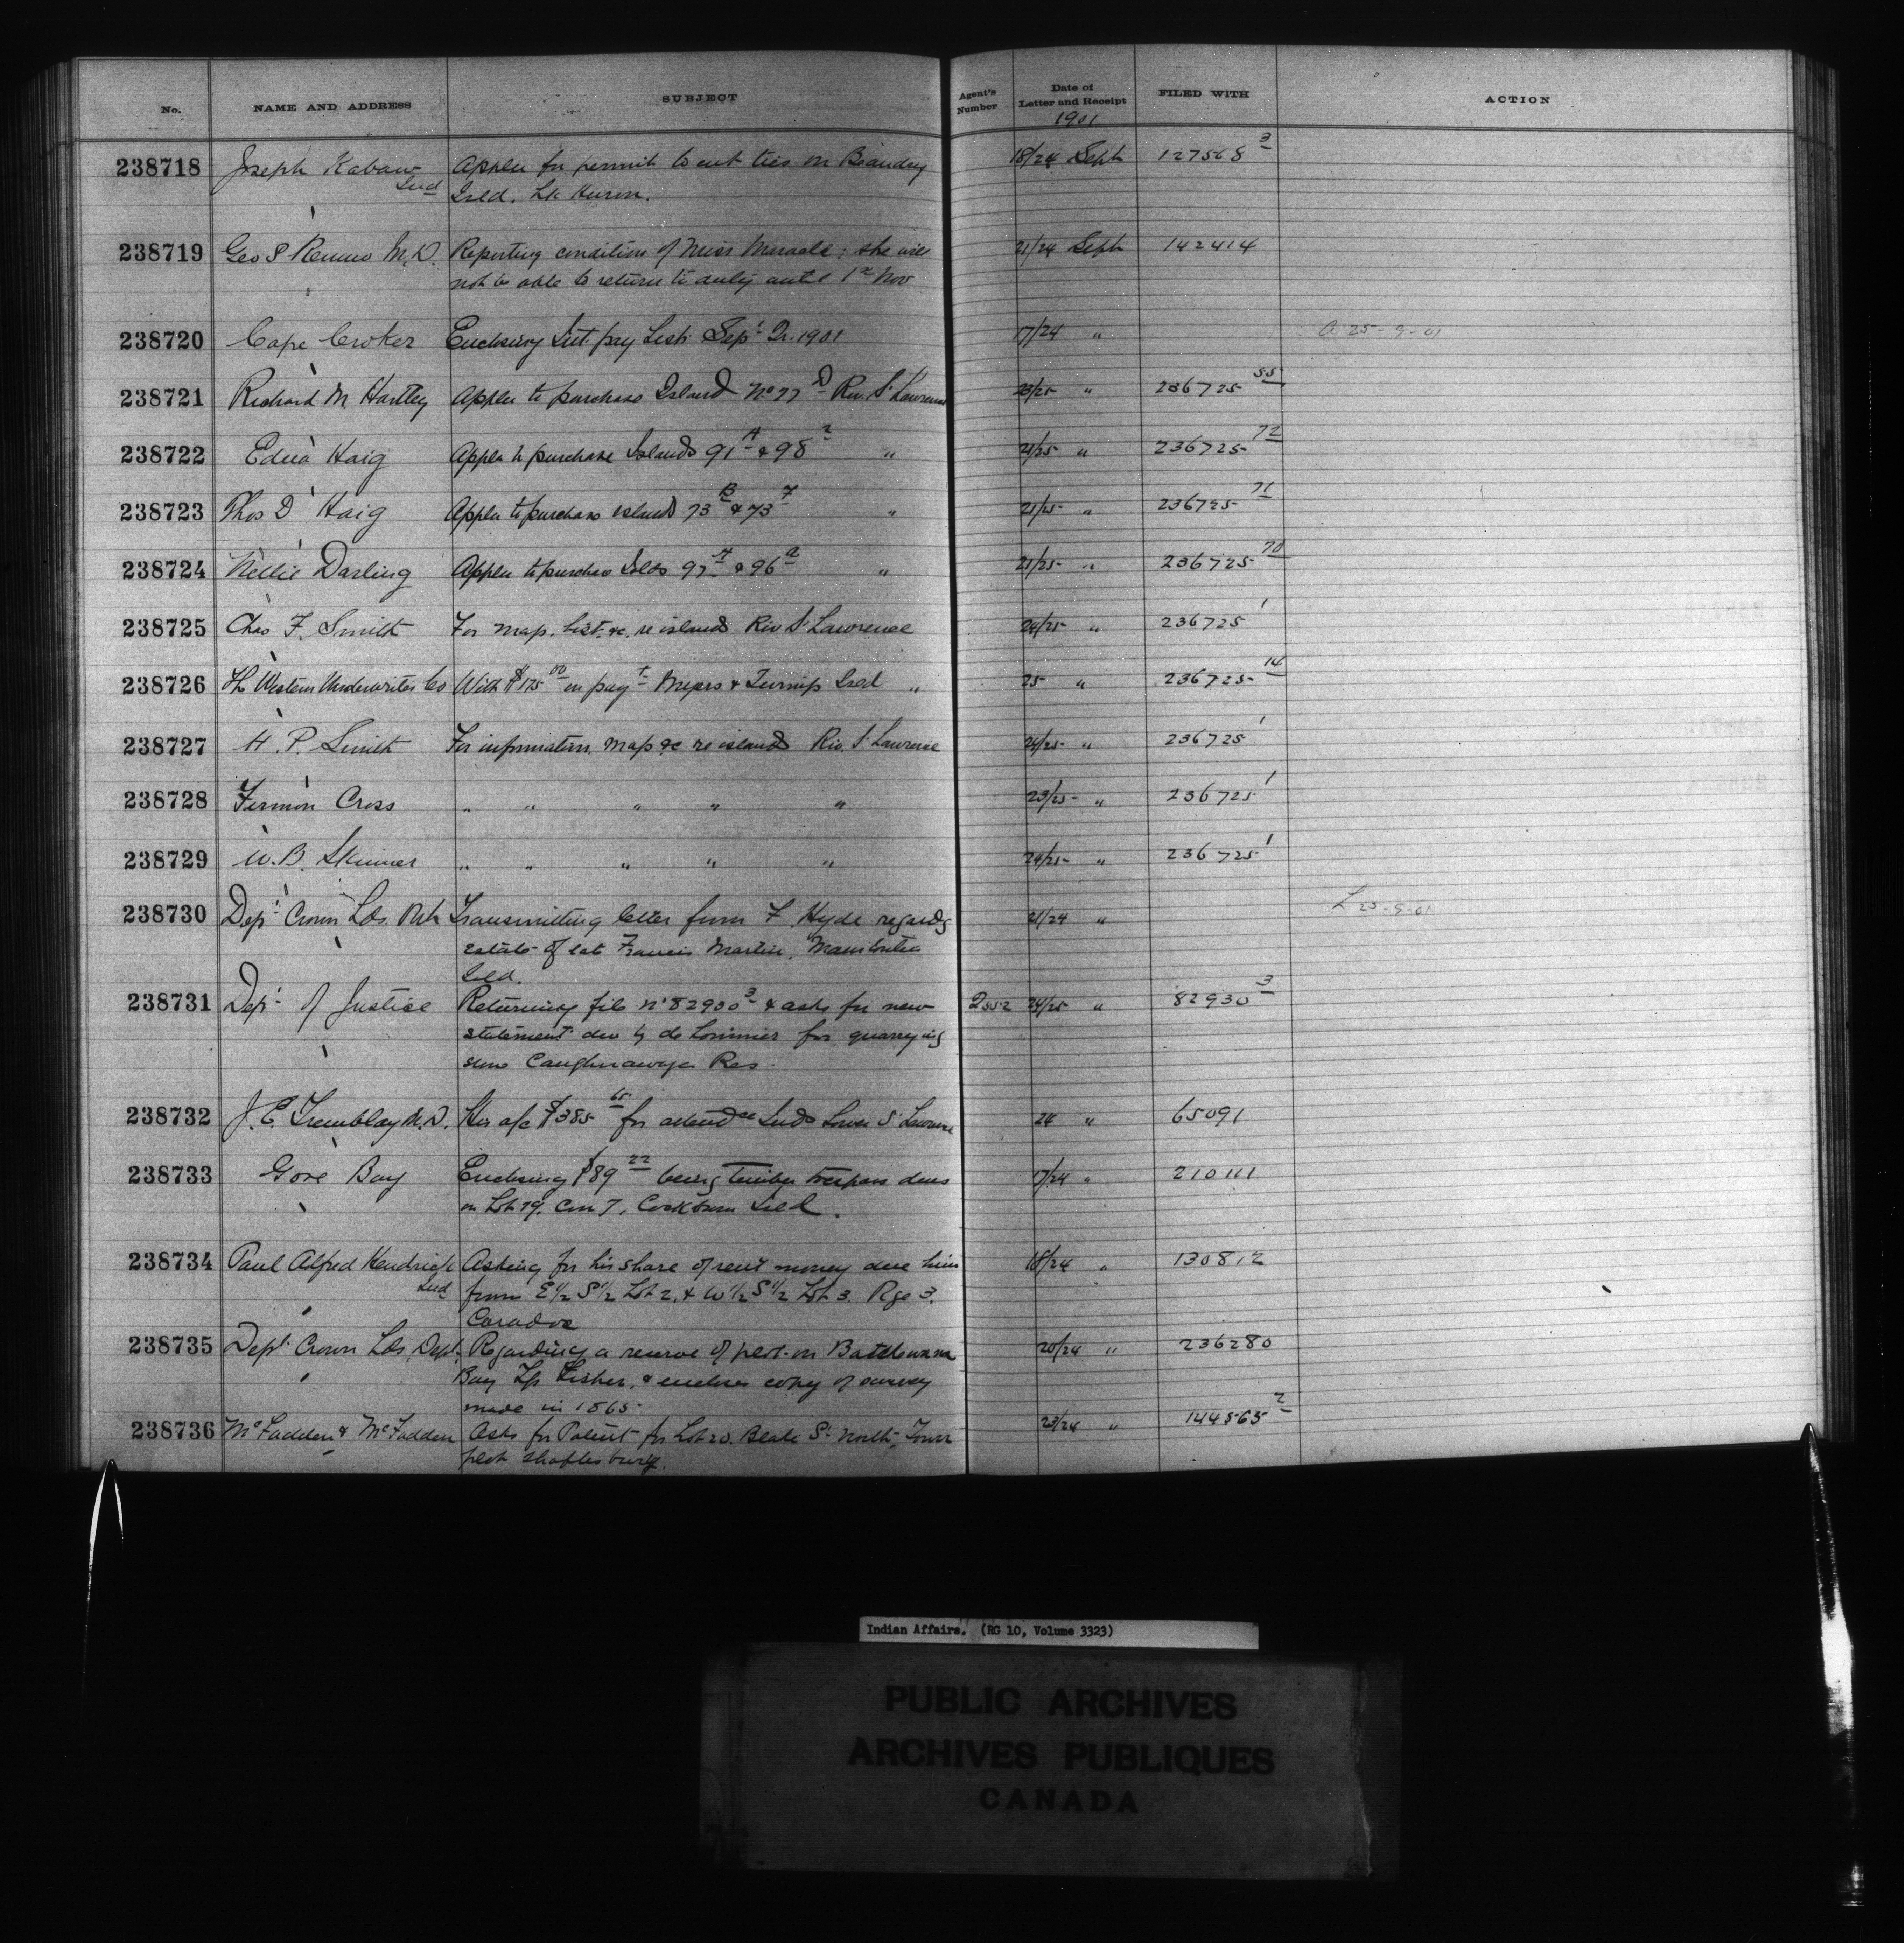 No. NAME AND ADDRESS SUBJECT Agent's Number Date of Letter and Receipt FILED WITH ACTION
1901
238718 Joseph Kabaw Applen for permit to cut ties on 18/24 Sept 127568 3
Ind Isld. Lk Huron.
238719 Geo S M.D. Reporting condition of Miss Maracle; she will 21/24 Sept 142414
not be able to return to duty until 1st Nov
238720 Cape Croker Enclosing Int. pay List Sept Qr. 1901 17/24 " a 25-9-01
238721 Richard M Hartley Applen to purchase Island No 77 D Riv. St Lawrence 23/25 " 236725 55
238722 Edna Haig Applen to purchase Islands 91 A & 98 2 " 21/25 " 236725 72
238723 Thos D Haig Applen to purchase islands 73 B & 73 F " 21/25 " 236725 71
238724 Nellie Darling Applen to purchase Islds 97 A & 96 a " 21/25 " 236725 70
238725 Chas F. Smith For map, list, &c, re islands Riv St Lawrence 24/25 " 236725 1
238726 The Western Underwriters Co With $175 00 in payt Myers & Turnip Isld " 25 " 236725 14
238727 H. P. Smith For information, map &c re islands Riv. St Lawrence 24/25 " 236725 1
238728 Fermon Cross " " " " " 23/25 " 236725 1
238729 W. B. Skinner " " " " " 24/25 " 236725 1
238730 Dept Crown Lds. Transmitting letter from F. Hyde regardg 21/24 " L 25-9-01
estate of late Francis Martin, Manitoulin
Isld.
238731 Dept of Justice Returning file No 82930 3 & asks for new 2552 24/25 " 82930 3
statement due by de Lorimier for quarrying
stone Caughnawaga Res.
238732 J. E. Tremblay M.D. His a/c $385 65 for attendce Inds Lower St Lawrence 24 " 65091
238733 Gore Bay Enclosing $89 22 being timber trespass dues 17/24 " 210111
on Lot 29, Con 7, Cockburn Isld.
238734 Paul Alfred Kendrick Asking for his share of rent money due him 18/24 " 130812
Ind from E 1/2 S 1/2 Lot 2, & W 1/2 S 1/2 Lot 3. Rge 3.
Caradoc
238735 Dept Crown Lds, Dept. Regarding a reserve of plot on Batchewana 20/24 " 236280
Bay Tp Fisher, & encloses copy of survey
made in 1865.
238736 McFadden & McFadden Asks for Patent for Lot 20. Beale St North, Town 23/24 " 144565 2
plot Shaftesbury.
Indian Affairs. (RG 10, Volume 3323)
PUBLIC ARCHIVES
ARCHIVES PUBLIQUES
CANADA